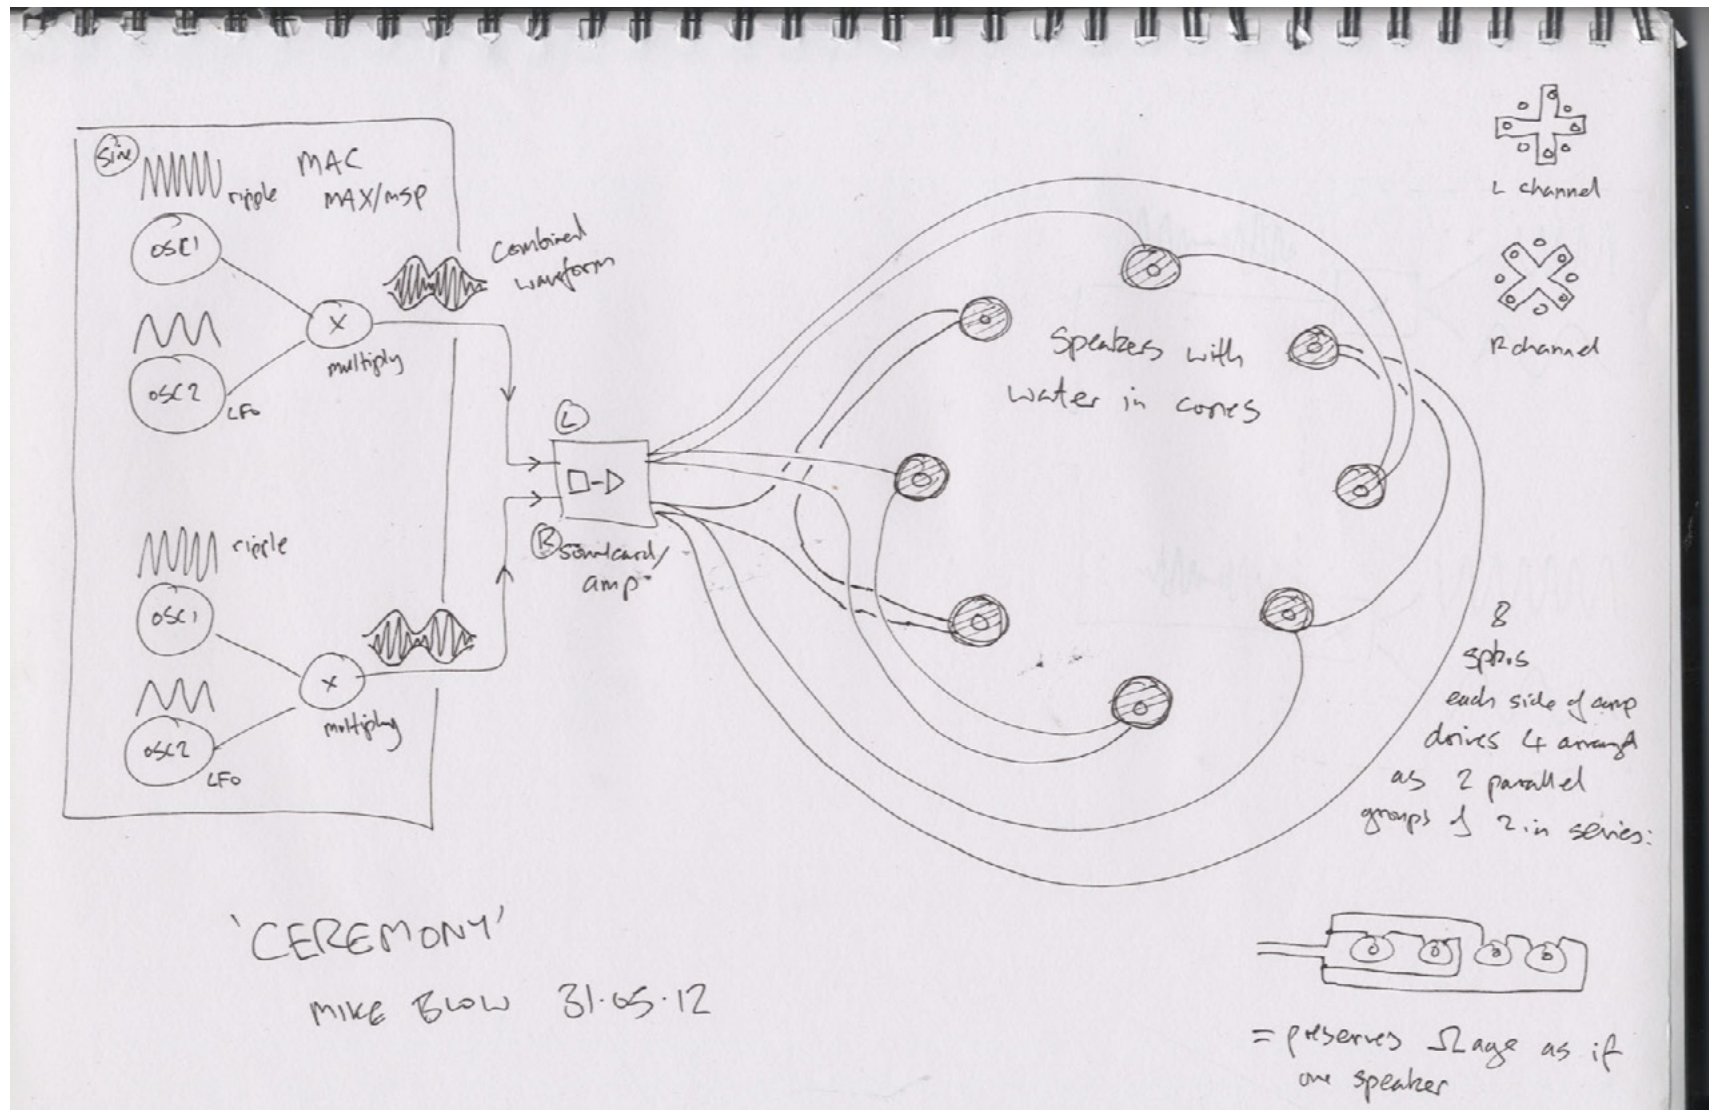 Sine
ripple
MAC
MAX/MSP
OSC1
X
multiply
OSC2
LFO
Combined
waveform
L
R
soundcard/
amp
ripple
OSC1
X
multiply
OSC2
LFO
Speakers with
water in cones
L channel
R channel
8
spkrs
each side of amp
drives 4 arranged
as 2 parallel
groups of 2 in series:
= preserves Ωage as if
one speaker
'CEREMONY'
MIKE BLOW 31.05.12